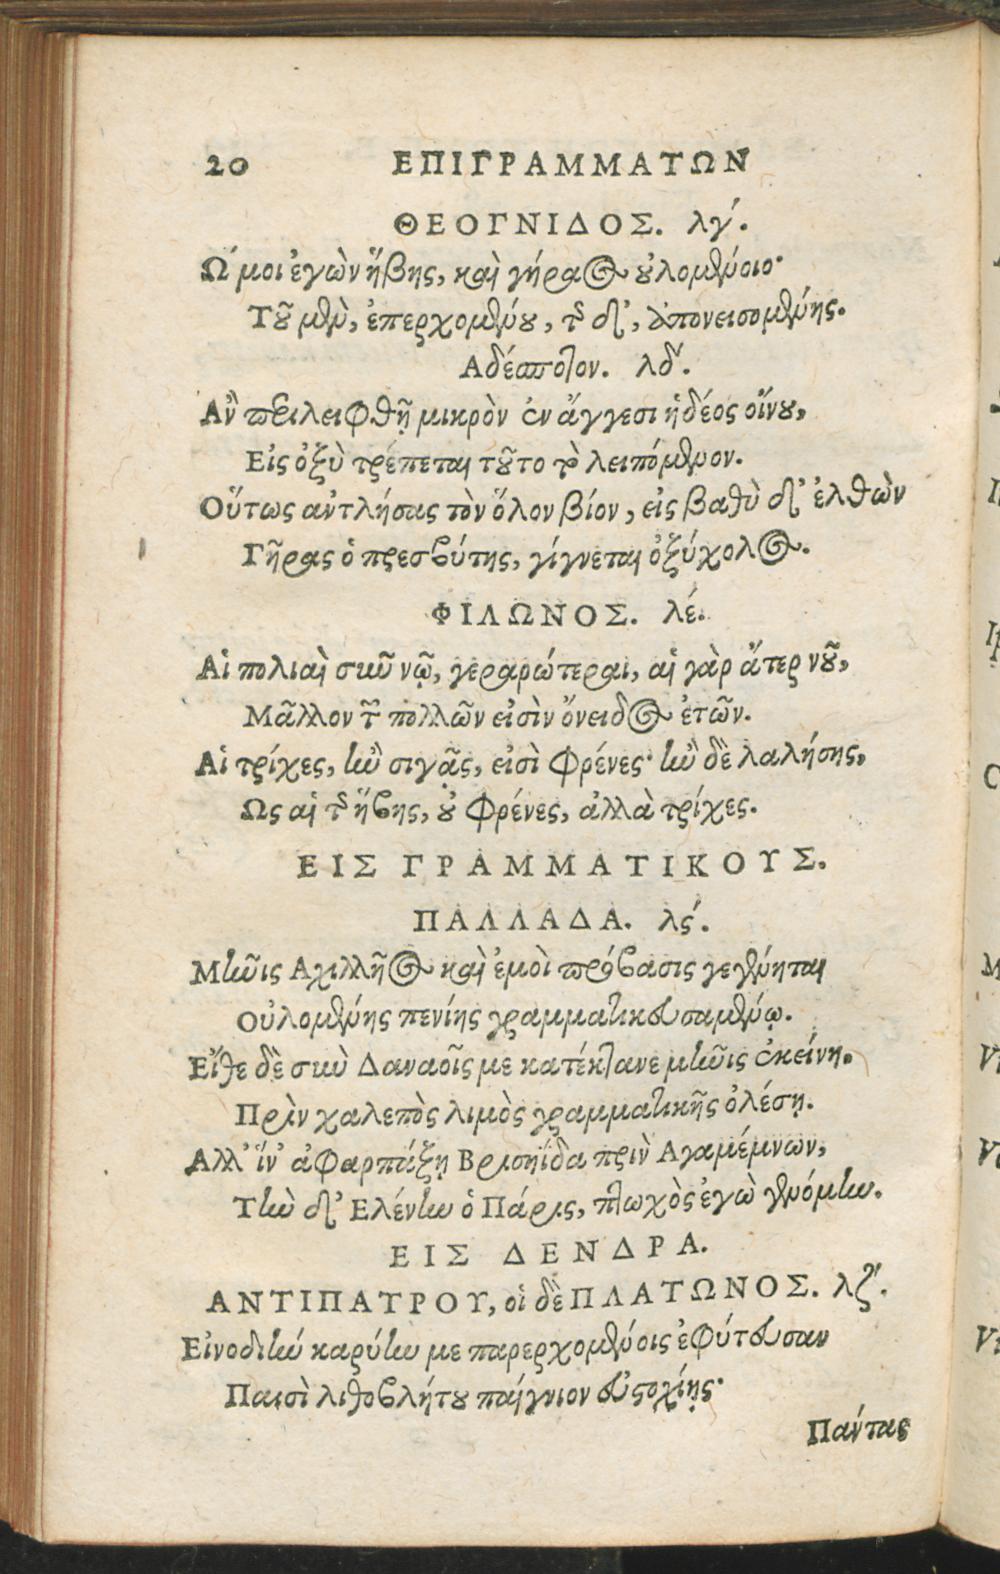 20 ΕΠΙΓΡΑΜΜΑΤΩΝ
ΘΕΟΓΝΙΔΟΣ. λγ'.
Ω μοι ἐγὼν ἥβης, καὶ γήραος οὐλομένοιο·
Τοῦ μὲν, ἐπερχομένου, τῆς δ', ἀπονεισομένης.
Αδέσποτον. λδ'.
Αν περιλειφθῇ μικρὸν ἐν ἄγγεσι ἡδέος οἴνου,
Εἰς ὀξὺ τρέπεται τοῦτο τὸ λειπόμενον.
Οὕτως αντλήσας τὸν ὅλον βίον, εἰς βαθὺ δ' ἐλθὼν
Γῆρας ὁ πρεσβύτης, γίγνεται ὀξύχολος.
ΦΙΛΩΝΟΣ. λέ.
Αἱ πολιαὶ σὺν νῷ, γεραρώτεραι, αἱ γὰρ ἄτερ νοῦ,
Μᾶλλον τῶν πολλῶν εἰσὶν ὄνειδος ἐτῶν.
Αἱ τρίχες, ἢν σιγᾷς, εἰσὶ φρένες· ἢν δὲ λαλήσης,
Ως αἱ τῆς ἥβης, οὐ φρένες, ἀλλὰ τρίχες.
ΕΙΣ ΓΡΑΜΜΑΤΙΚΟΥΣ.
ΠΑΛΛΑΔΑ. λς'.
Μῆνις Αχιλλῆος καὶ ἐμοὶ πρόβασις γεγένηται
Οὐλομένης πενίης γραμματικευσαμένῳ.
Εἴθε δὲ σὺν Δαναοῖς με κατέκτανε μῆνις ἐκείνη,
Πρὶν χαλεπὸς λιμὸς γραμματικῆς ὀλέσῃ.
Αλλ' ἵν' ἀφαρπάξῃ Βρισηΐδα πρὶν Αγαμέμνων,
Τὴν δ' Ελένην ὁ Πάρις, πτωχὸς ἐγὼ γενόμην.
ΕΙΣ ΔΕΝΔΡΑ.
ΑΝΤΙΠΑΤΡΟΥ, οἱ δὲ ΠΛΑΤΩΝΟΣ. λζ'.
Εἰνοδίην καρύην με παρερχομένοις ἐφύτευσαν
Παισὶ λιθοβλήτου παίγνιον εὐστοχίης·
Πάντας